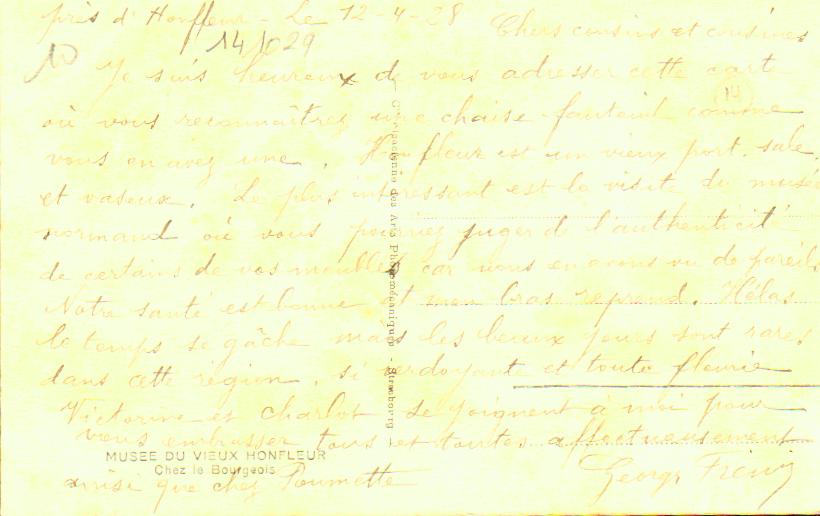 près d'Honfleur - Le 12-4-28
14/029
Chers cousins et cousines
10
Je suis heureux de vous adresser cette carte
14
où vous reconnaîtrez une chaise-fauteuil comme
vous en avez une. Honfleur est un vieux port, sale,
et vaseux. Le plus intéressant est la visite du musée
normand où vous pourriez juger de l'authenticité
de certains de vos meubles car nous en avons vu de pareils
Notre santé est bonne et mon bras reprend. Hélas
le temps se gâche mais les beaux jours sont rares
dans cette région, si verdoyante et toute fleurie
Victorine et Charlot se joignent à moi pour
vous embrasser tous et toutes affectueusement
ainsi que chez Poumette
Georges
Compagnie des Arts Photomécaniques - Strasbourg
MUSEE DU VIEUX HONFLEUR
Chez le Bourgeois